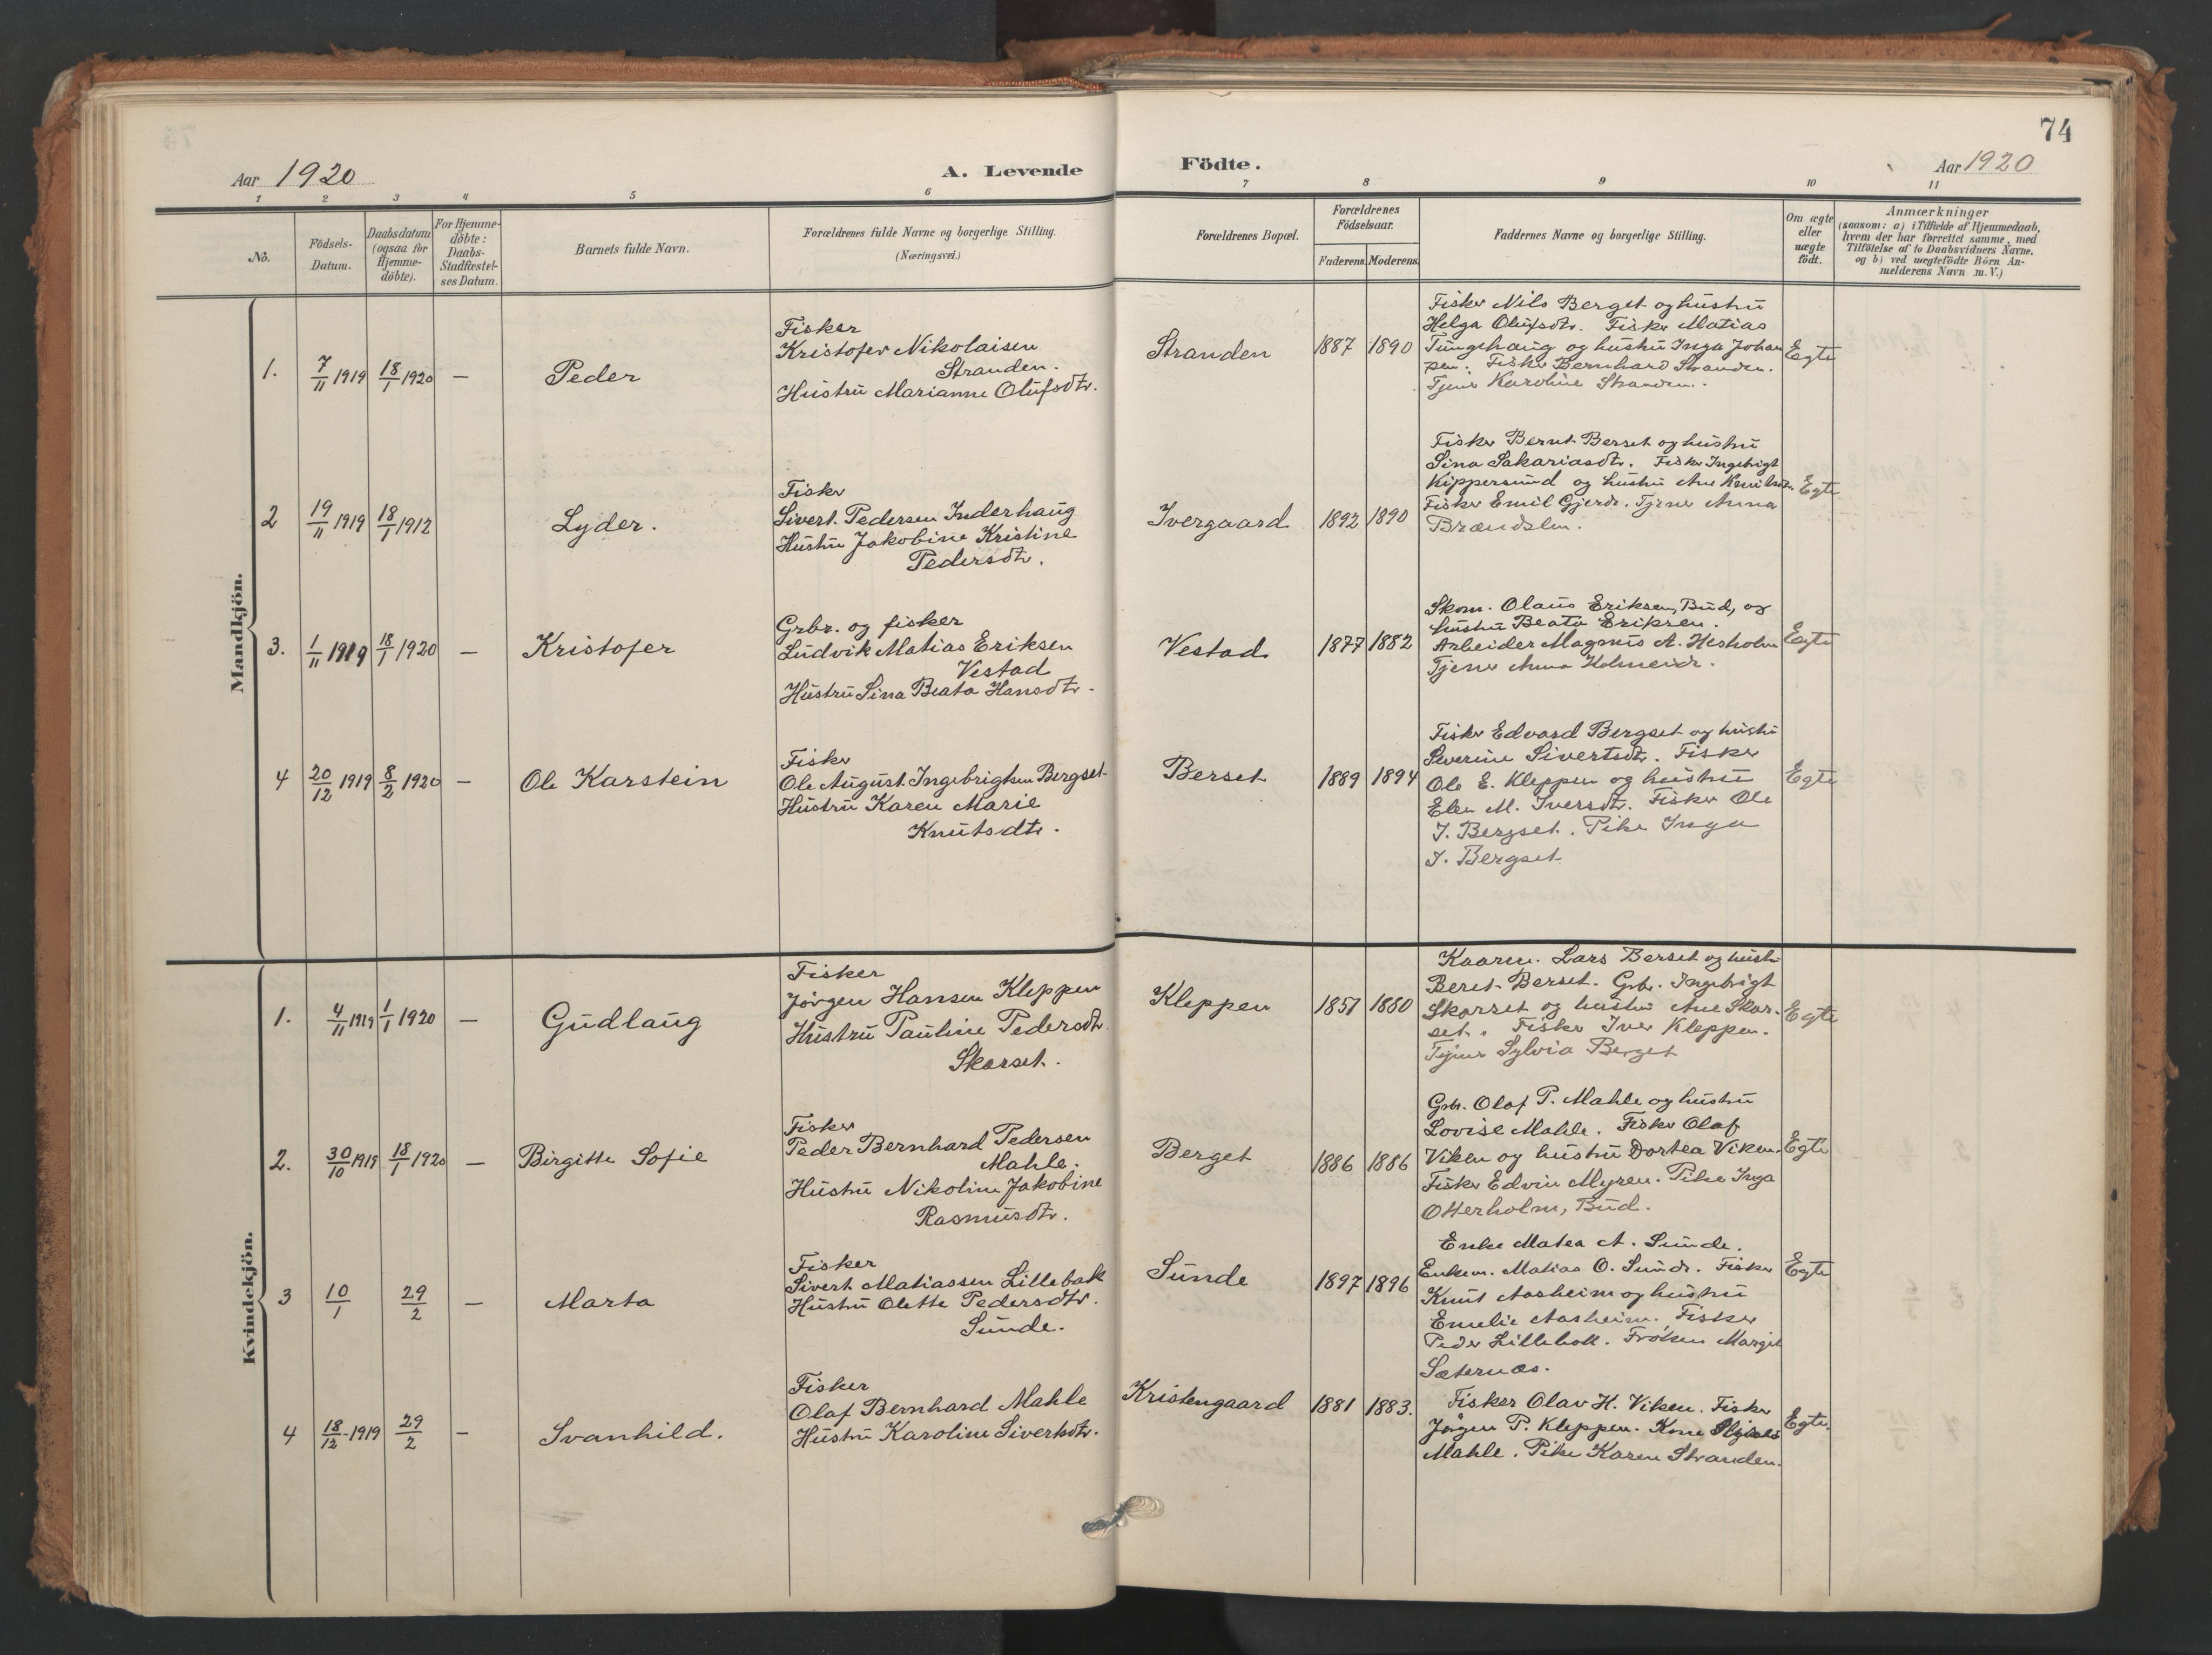 74
Aar 1920
A. Levende
Födte.
Aar 1920
1 2 3 4 5 6 7 8 9 10 11
No.
Födsels-
Datum.
Daabsdatum
(ogsaa for
Hjemme-
döbte).
For Hjemme-
döbte:
Daabs-
Stadfæstel-
ses Datum.
Barnets fulde Navn.
Forældrenes fulde Navne og borgerlige Stilling.
(Næringsvei.)
Forældrenes Bopæl.
Forældrenes
Födselsaar.
Faderens. Moderens.
Faddernes Navne og borgerlige Stilling.
Om ægte
eller
uægte
födt.
Anmærkninger
(saasom: a) i Tilfælde af Hjemmedaab,
hvem der har forrettet samme, med
Tilföielse af to Daabsvidners Navne.
og b) ved uægtefödte Börn An-
melderens Navn m. V.)
Mandkjön.
1. 7/11 1919 18/1 1920 — Peder
Fisker
Kristofer Nikolaisen
Stranden.
Hustru Marianne Olufsdtr.
Stranden 1887 1890
Fisker Nils Berget og hustru
Helga Olufsdtr. Fisker Matias
Tungehaug og hustru Inga Johan
sen. Fisker Bernhard Stranden.
Tjener Karoline Stranden.
Egte
2 19/11 1919 18/1 1912 Lyder.
Fisker
Sivert. Pedersen Inderhaug
Hustru Jakobine Kristine
Pedersdtr.
Ivergaard 1892 1890
Fisker Bernt Berset og hustru
Sina Sakariasdtr. Fisker Ingebrigt
Kippersund og hustru Ane Knutsdtr.
Fisker Emil Gjerde. Tjener Anna
Brændslen.
Egte
3. 1/11 1919 18/1 1920 — Kristofer
Grbr. og fisker
Ludvik Matias Eriksen
Vestad
Hustru Sina Beata Hansdtr.
Vestad 1877 1882
Skom. Olaus Eriksen, Bud, og
hustru Beata Eriksen.
Arbeider Magnus A. Hesholm
Tjener Anna Holmeide.
Egte
4 20/12 1919 8/2 1920 — Ole Karstein
Fisker
Ole August Ingebrigtsen Bergset
Hustru Karen Marie
Knutsdtr.
Berset 1889 1894
Fisker Edvard Bergset og hustru
Severine Sivertsdtr. Fisker
Ole E. Kleppen og hustru
Elen M. Iversdtr. Fisker Ole
I. Bergset. Pike Inga
I. Bergset
Egte
Kvindekjön.
1. 4/11 1919 1/1 1920 — Gudlaug
Fisker
Jörgen Hansen Kleppen
Hustru Pauline Pedersdtr
Skarset.
Kleppen 1857 1880
Kaarm. Lars Berset og hustru
Beret Berset. Grbr. Ingebrigt
Skarset og hustru Ane Skar-
set. Fisker Iver Kleppen.
Tjener Sylvia Berget
Egte
2. 30/10 1919 18/1 1920 — Birgitte Sofie
Fisker
Peder Bernhard Pedersen
Mahle.
Hustru Nikoline Jakobine
Rasmusdtr.
Berget 1886 1886
Grbr. Olaf P. Mahle og hustru
Lovise Mahle. Fisker Olaf
Viken og hustru Dortea Viken.
Fisker Edvin Myren. Pike Inga
Otterholm, Bud.
Egte
3 10/1 29/2 — Marta
Fisker
Sivert Matiassen Lillebak
Hustru Olette Pedersdtr.
Sunde.
Sunde 1897 1896
Enke Matea A. Sunde.
Enkem. Matias O. Sunde. Fisker
Knut Aasheim og hustru
Emelie Aasheim. Fisker
Peder Lillebak. Fröken Margit
Sæternæs.
Egte
4 18/12 - 1919 29/2 — Svanhild.
Fisker
Olaf Bernhard Mahle
Hustru Karoline Sivertsdtr.
Kristengaard 1881 1883.
Fisker Olav H. Viken. Fisker
Jörgen P. Kleppen. Kone
Mahle. Pike Karen Stranden.
Egte.